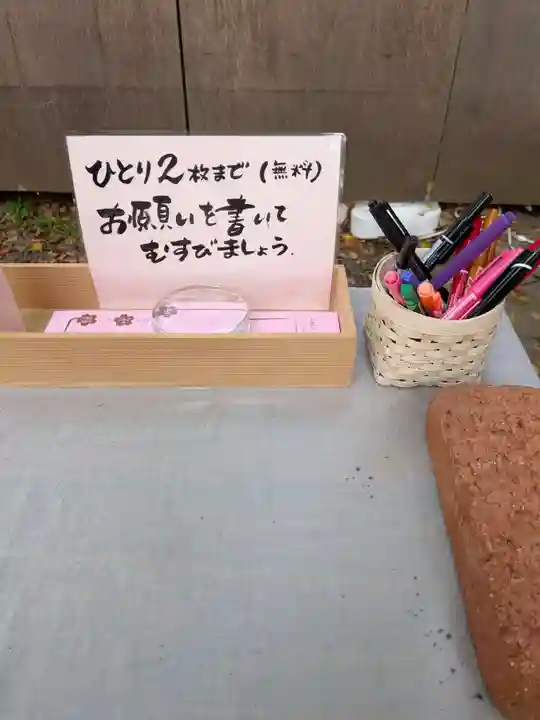 ひとり2枚まで(無料)
お願いを書いて
むすびましょう.